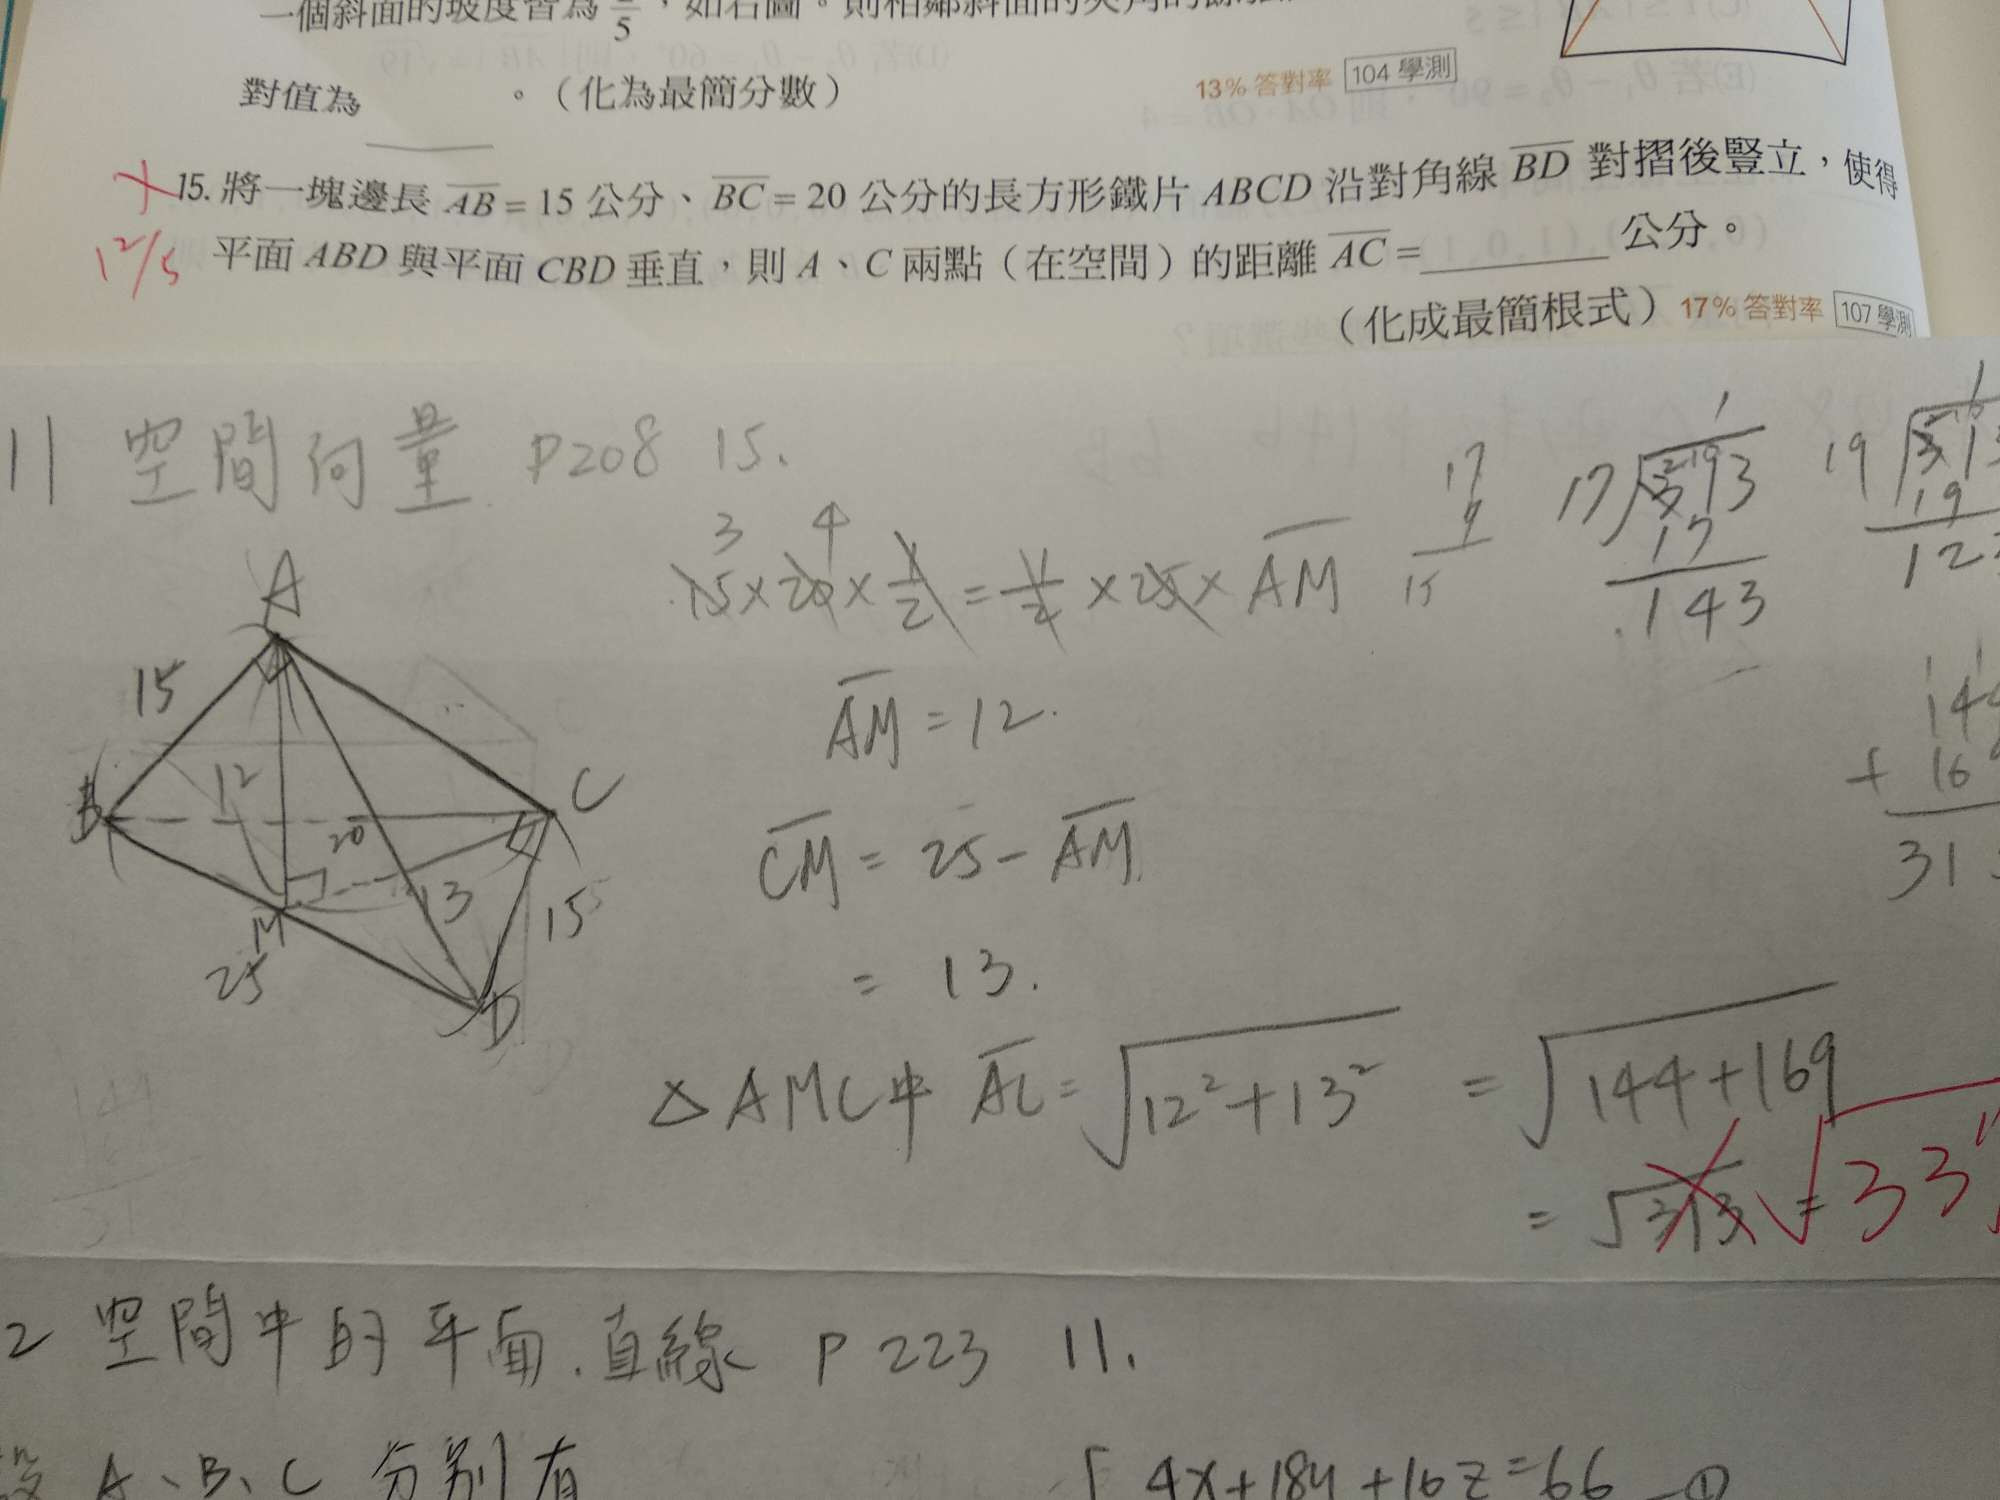 一個斜面的坡度皆為 /5，如右圖。則相鄰斜面的夾角的
對值為______。（化為最簡分數） 13% 答對率 104 學測
15. 將一塊邊長 AB = 15 公分、BC = 20 公分的長方形鐵片 ABCD 沿對角線 BD 對摺後豎立，使得
12/5 平面 ABD 與平面 CBD 垂直，則 A、C 兩點（在空間）的距離 AC = ______ 公分。
（化成最簡根式） 17% 答對率 107 學測
11 空間向量 P208 15.
3 4
15×20×1/2 = 1/2 ×25× AM
17
9
15
1
17 393
17
143
19
19
A
15
B
12
20
C
M
13
15
25
D
AM = 12.
CM = 25 - AM
= 13.
+ 169
△AMC中 AC = √12²+13² = √144+169
= √313 = √33
2 空間中的平面.直線 P 223 11.
設 A、B、C 分別有
4x+18y+16z=66 ①